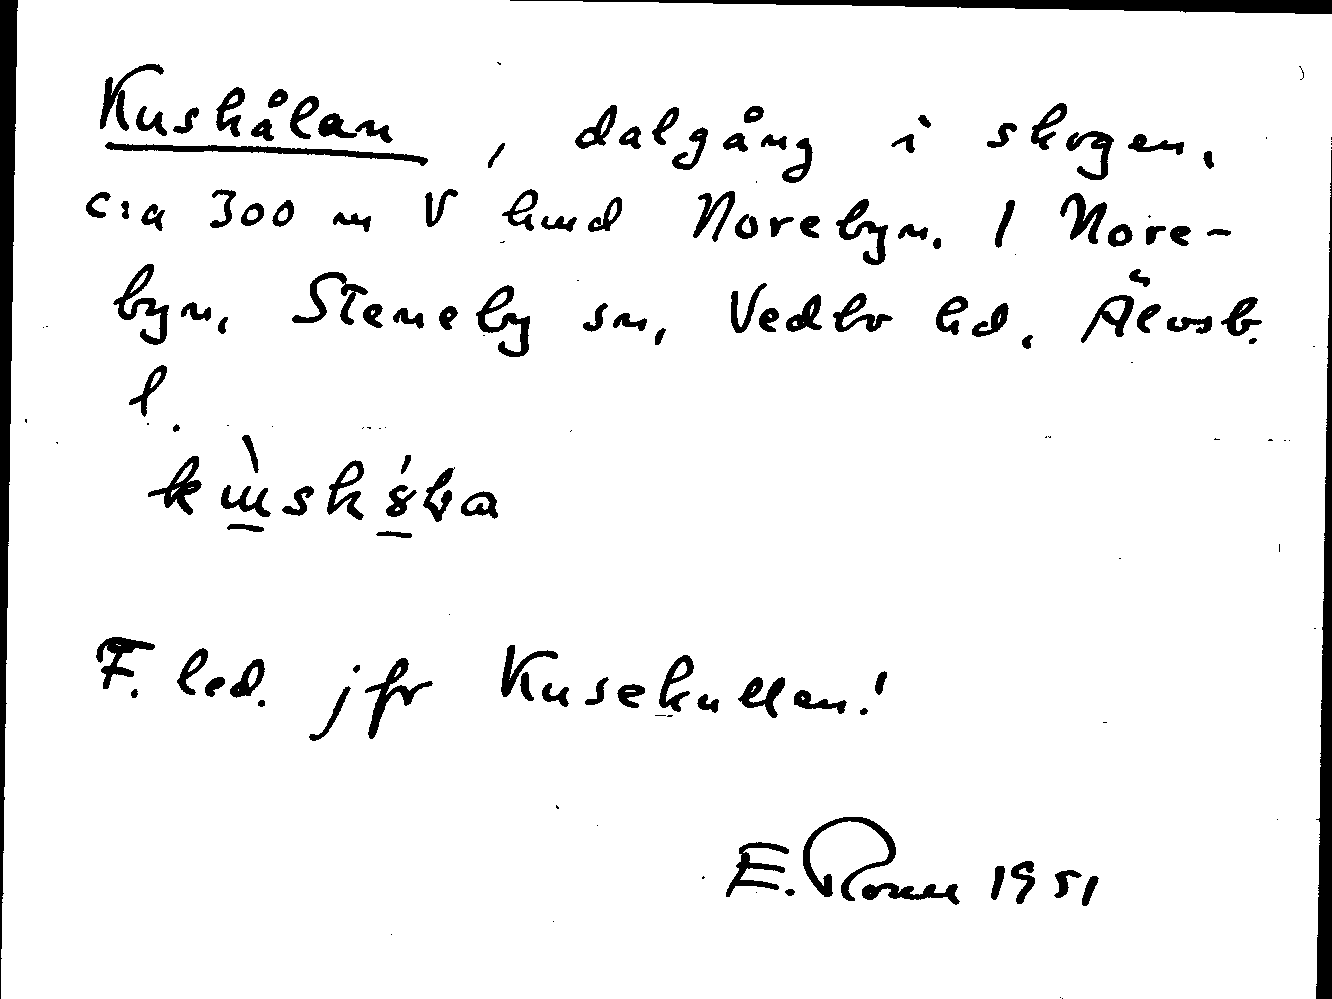 Kushålan, dalgång i skogen,
c:a 300 m V hmd Norebyn. I Nore-
byn, Steneby sn, Vedbo hd, Älvsb.
l.
F. led. jfr Kusekullen!
E. 1951